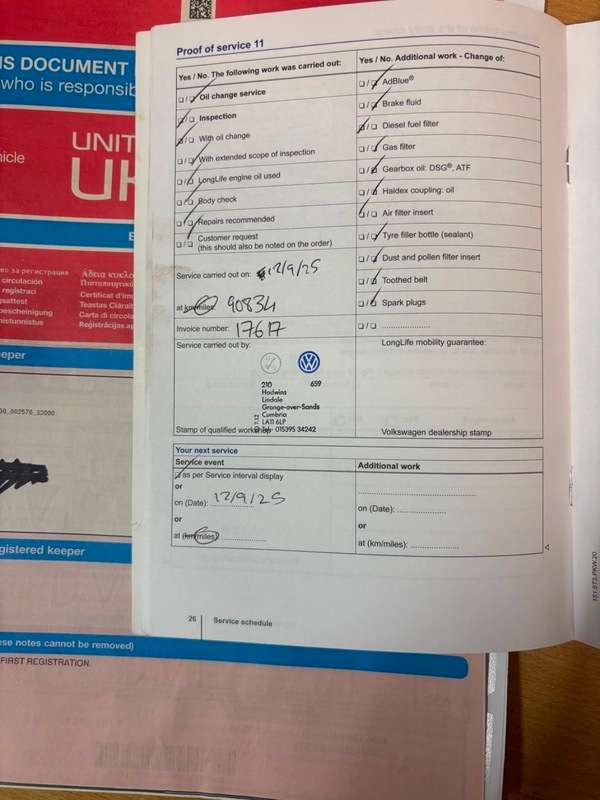 IS DOCUMENT
who is responsib
UNIT
UK
hicle
во за регистрация
Άδεια κυκλο
circulación
Πιστοποιητικό
registraci
Certificat d'im
gsattest
Teastas Cláraith
bescheinigung
Carta di circola
nistunnistus
Reģistrācijas ap
eeper
gistered keeper
ese notes cannot be removed)
FIRST REGISTRATION.
Proof of service 11
Yes / No. The following work was carried out:
Oil change service
Inspection
With oil change
With extended scope of inspection
LongLife engine oil used
Body check
Repairs recommended
Customer request
(this should also be noted on the order)
Service carried out on: 12/9/25
at km/miles: 90834
Invoice number: 17617
Service carried out by:
210 659
Hadwins
Lindale
Grange-over-Sands
Cumbria
LA11 6LP
Tel: 015395 34242
Stamp of qualified workshop
Yes / No. Additional work - Change of:
AdBlue®
Brake fluid
Diesel fuel filter
Gas filter
Gearbox oil: DSG®, ATF
Haldex coupling: oil
Air filter insert
Tyre filler bottle (sealant)
Dust and pollen filter insert
Toothed belt
Spark plugs
LongLife mobility guarantee:
Volkswagen dealership stamp
Your next service
Service event
as per Service interval display
or
on (Date): 12/9/25
or
at (km/miles):
Additional work
on (Date):
or
at (km/miles):
26 Service schedule
151.5T3.PKW.20